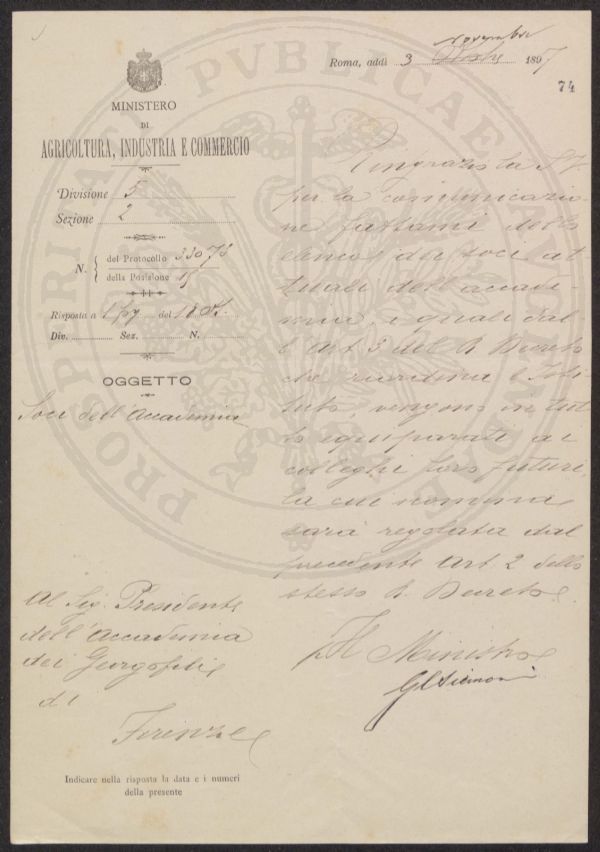 Roma, addì 3 Novembre 1897
74
MINISTERO
DI
AGRICOLTURA, INDUSTRIA E COMMERCIO
Divisione 5
Sezione 2
N. del Protocollo 33073
della Posizione 15
Risposta a del
Div. Sez. N.
OGGETTO
Soci dell'Accademia
Ringrazio la S. V.
per la comunicazio-
ne fattami dello
elenco dei soci at
tuali dell'accade-
mia, i quali dal
l'art 3 del R Decreto
che riordina l'Isti-
tuto, vengono in tut
to equiparati ai
colleghi loro futuri,
la cui nomina
sarà regolata dal
precedente art 2 dello
stesso R. Decreto.
Il Ministro
Al Sig. Presidente
dell'Accademia
dei Georgofili
di
Firenze
Indicare nella risposta la data e i numeri
della presente
PROSPERITATI PUBLICAE AUGENDAE